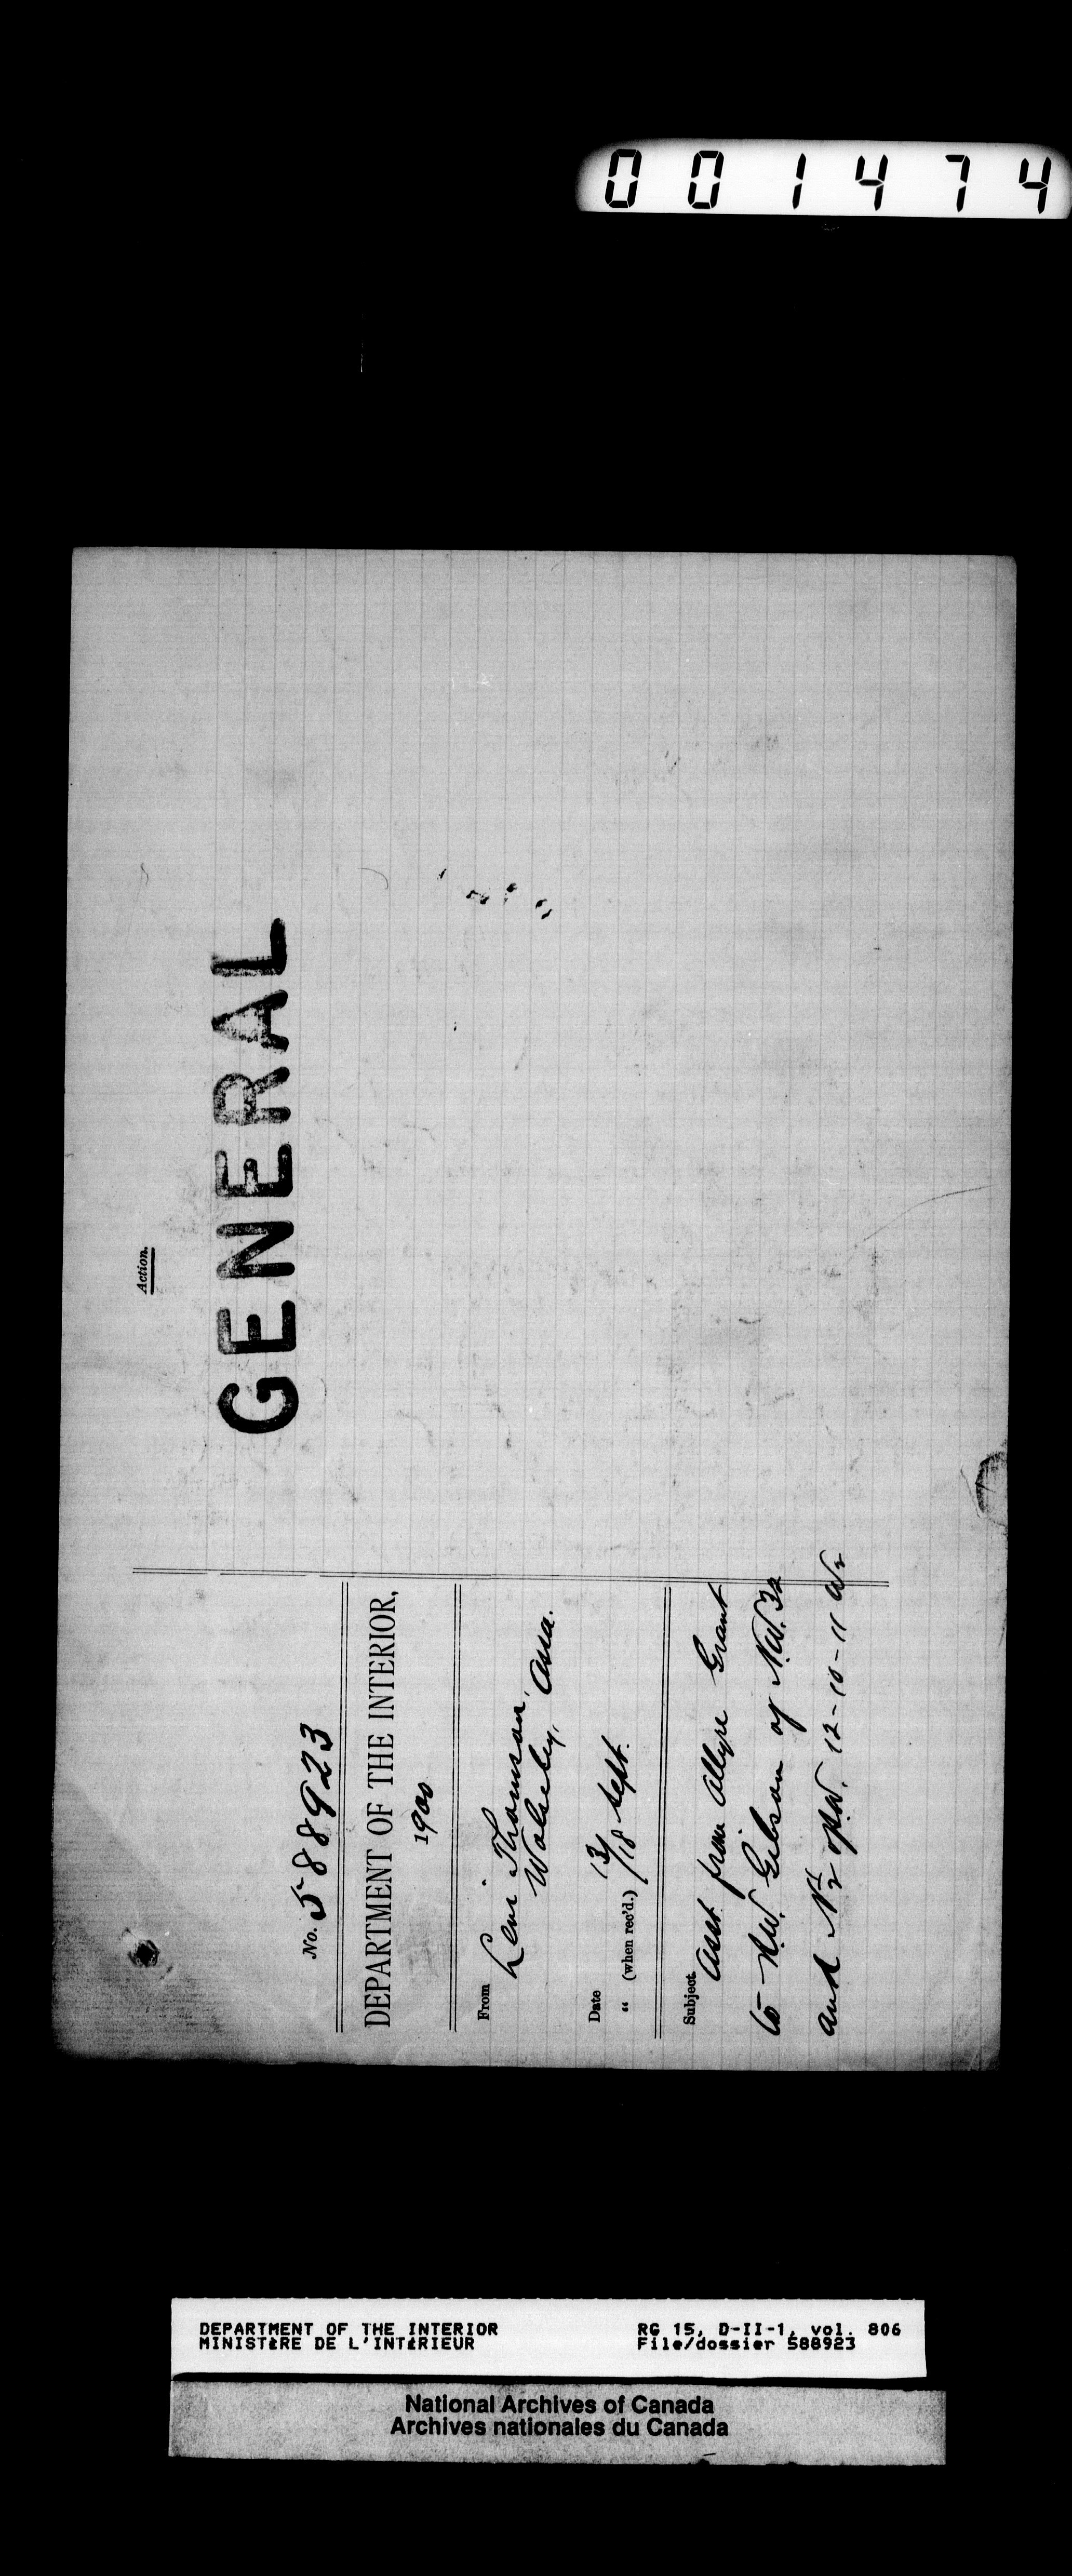 001474
Action.
GENERAL
No. 588923
DEPARTMENT OF THE INTERIOR,
1900
From Levi Thomson,
Wolseley, Assa.
Date 13/
" (when rec'd.) /18 Sept.
Subject Asst. from Allyre Grant
to R.W. Gibson of N.W. 1/4
and N 1/2 of S.W. 12-10-11 W2
DEPARTMENT OF THE INTERIOR
MINISTÈRE DE L'INTÉRIEUR
RG 15, D-II-1, vol. 806
File/dossier 588923
National Archives of Canada
Archives nationales du Canada